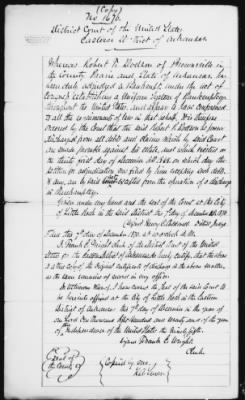 (Copy)
No 1676.
District Court of the United States
Eastern District of Arkansas
Whereas Robert W. Dodson of Brownsville in
the County Prairie and State of Arkansas, has
been duly adjudged a Bankrupt under the act of
Congress establishing a Uniform System of Bankruptcy
throughout the United States and appears to have conformed
to all the requirements of law in that behalf, It is therefore
ordered by the Court that the said Robert W. Dodson be forever
discharged from all debts and claims which by said Act
are made provable against his estate, and which existed on
the thirty first day of December AD 1868. on which day the
petition for adjudication was filed by him excepting such debts,
if any, as by said excepted from the operation of a discharge
in Bankruptcy.
Given under my hand and the seal of the Court at the City
of Little Rock in the said District this 7th day of December AD 1870.
Signed Henry C. Caldwell District Judge
Filed this 7th day of December 1870. at o'clock M.
I Frank E. Wright Clerk of the District Court of the United
States for the Eastern District of Arkansas hereby certify, that the above
is a true copy of the Original certificate of discharge in the above matter,
as the same remains of record in my office.
In Witness Whereof I have caused the Seal of the said Court to
be hereunto affixed at the City of Little Rock in the Eastern
District of Arkansas this 7th day of December in the year of
our Lord One Thousand eight hundred and seventy and of the year
of the Independence of the United States the Ninety fifth.
Signed Frank E. Wright
Clerk
Copied by me,